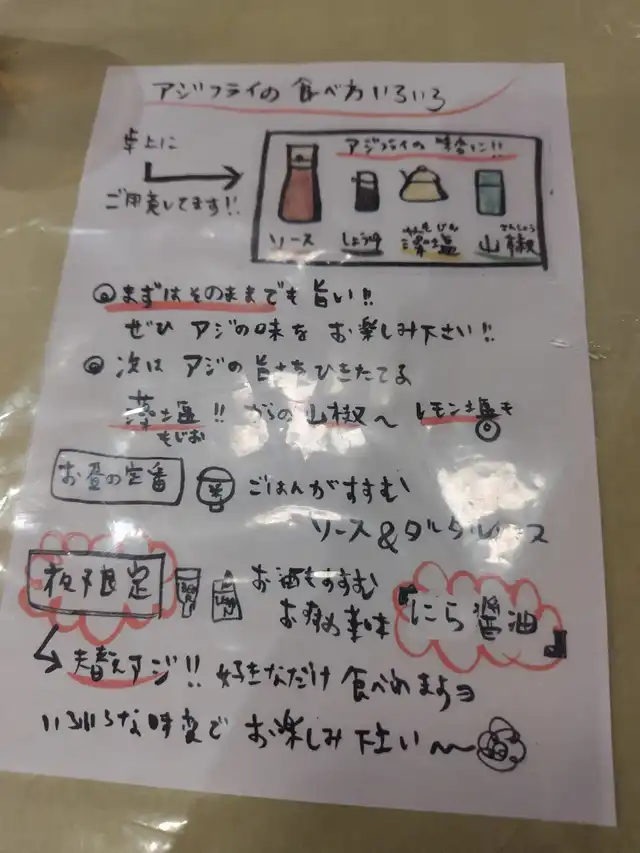 アジフライの食べ方いろいろ
卓上に
ご用意してます!!
アジフライの味変に!!
ソース
しょうゆ
藻塩
山椒
さんしょう
◎まずはそのままでも旨い!!
ぜひ アジの味を お楽しみ下さい!!
◎次は アジの旨さをひきたてる
藻塩!! からの山椒〜 レモン塩も◎
もじお
お昼の定番
ごはんがすすむ
ソース&タルタルソース
夜限定
お酒もすすむ
お好み薬味
『にら醤油』
替えアジ!! 好きなだけ 食べれますヨ
いろいろな味変で お楽しみ下さい〜